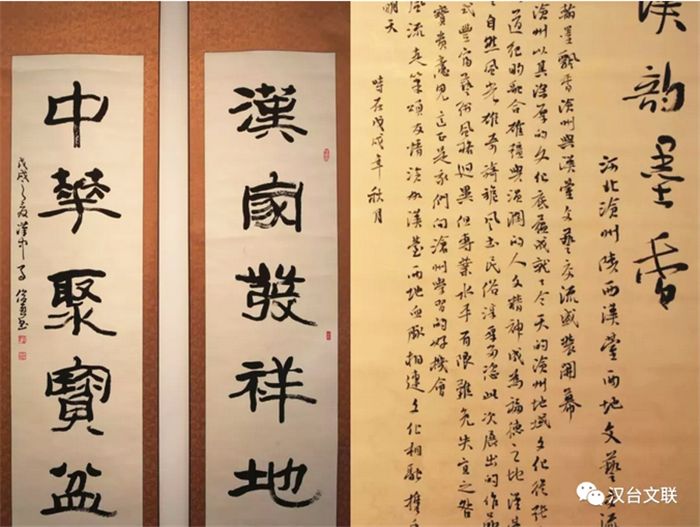 漢家發祥地
中華聚寶盆
戊戌之夏漢中
漢韵墨香
河北滄州陝西漢臺兩地文藝交流
翰墨飄香滄州與漢臺文藝交流盛裝開幕
滄州以其深厚的文化底蘊成就了今天的滄州地域文化從
道的融合雄穩與溫潤的人文精神成為論德之地漢
自然風光雄奇旖旎風土民俗淳此次展出的作品
式豐富藝術風格迥異但專業水平有限難免失宜之咎
寶貴意見這正是我們向滄州學習的好機會
風流走筆頌友情滄州漢臺兩地血脈相連文化相融攜手
明天
時在戊戌年秋月
汉台文联